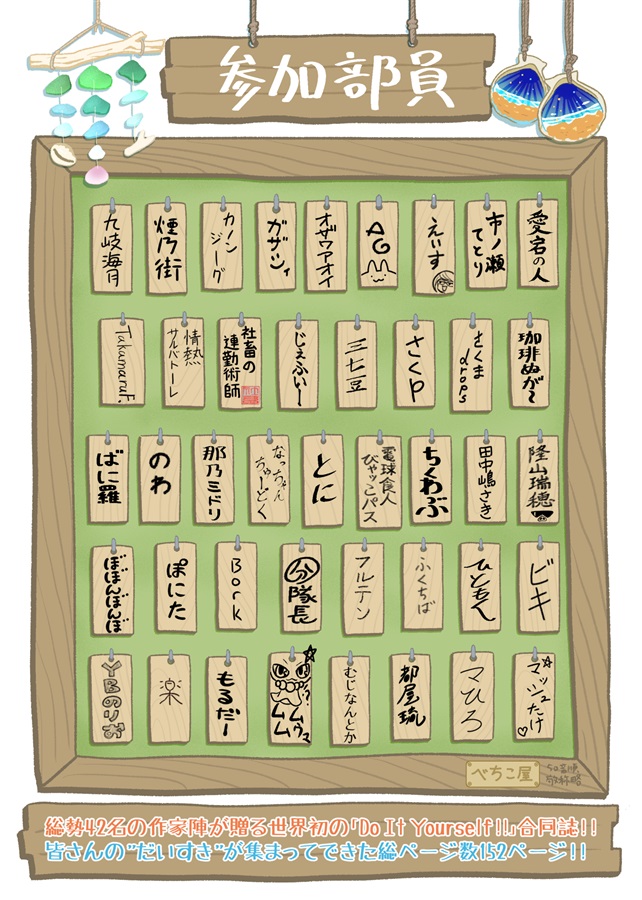 参加部員
愛宕の人
市ノ瀬てとり
えいす
AG
オザワアオイ
ガザシィ
カノンジーグ
煙乃街
九岐海月
珈琲ぬが〜
さくまdrops
さくP
三七豆
じぇふぃ〜
社畜の連勤術師
情熱サルバトーレ
TakamaruF.
隆山瑞穂
田中嶋さき
ちくわぶ
電球食人びゃっこパス
とに
なっちゃんちゅーどく
那乃ミドリ
のわ
ばに羅
ビキ
ひともへ
ふくちば
フルテン
分隊長
Bork
ぽにた
ぼぼんぼんぼ
マッシュたけ
マひろ
都屋琉
むじなんとか
ムムムゥマ
もるだー
楽
YBのりお
べちこ屋
50音順
敬称略
総勢42名の作家陣が贈る世界初の「Do It Yourself!!」合同誌!!
皆さんの"だいすき"が集まってできた総ページ数152ページ!!